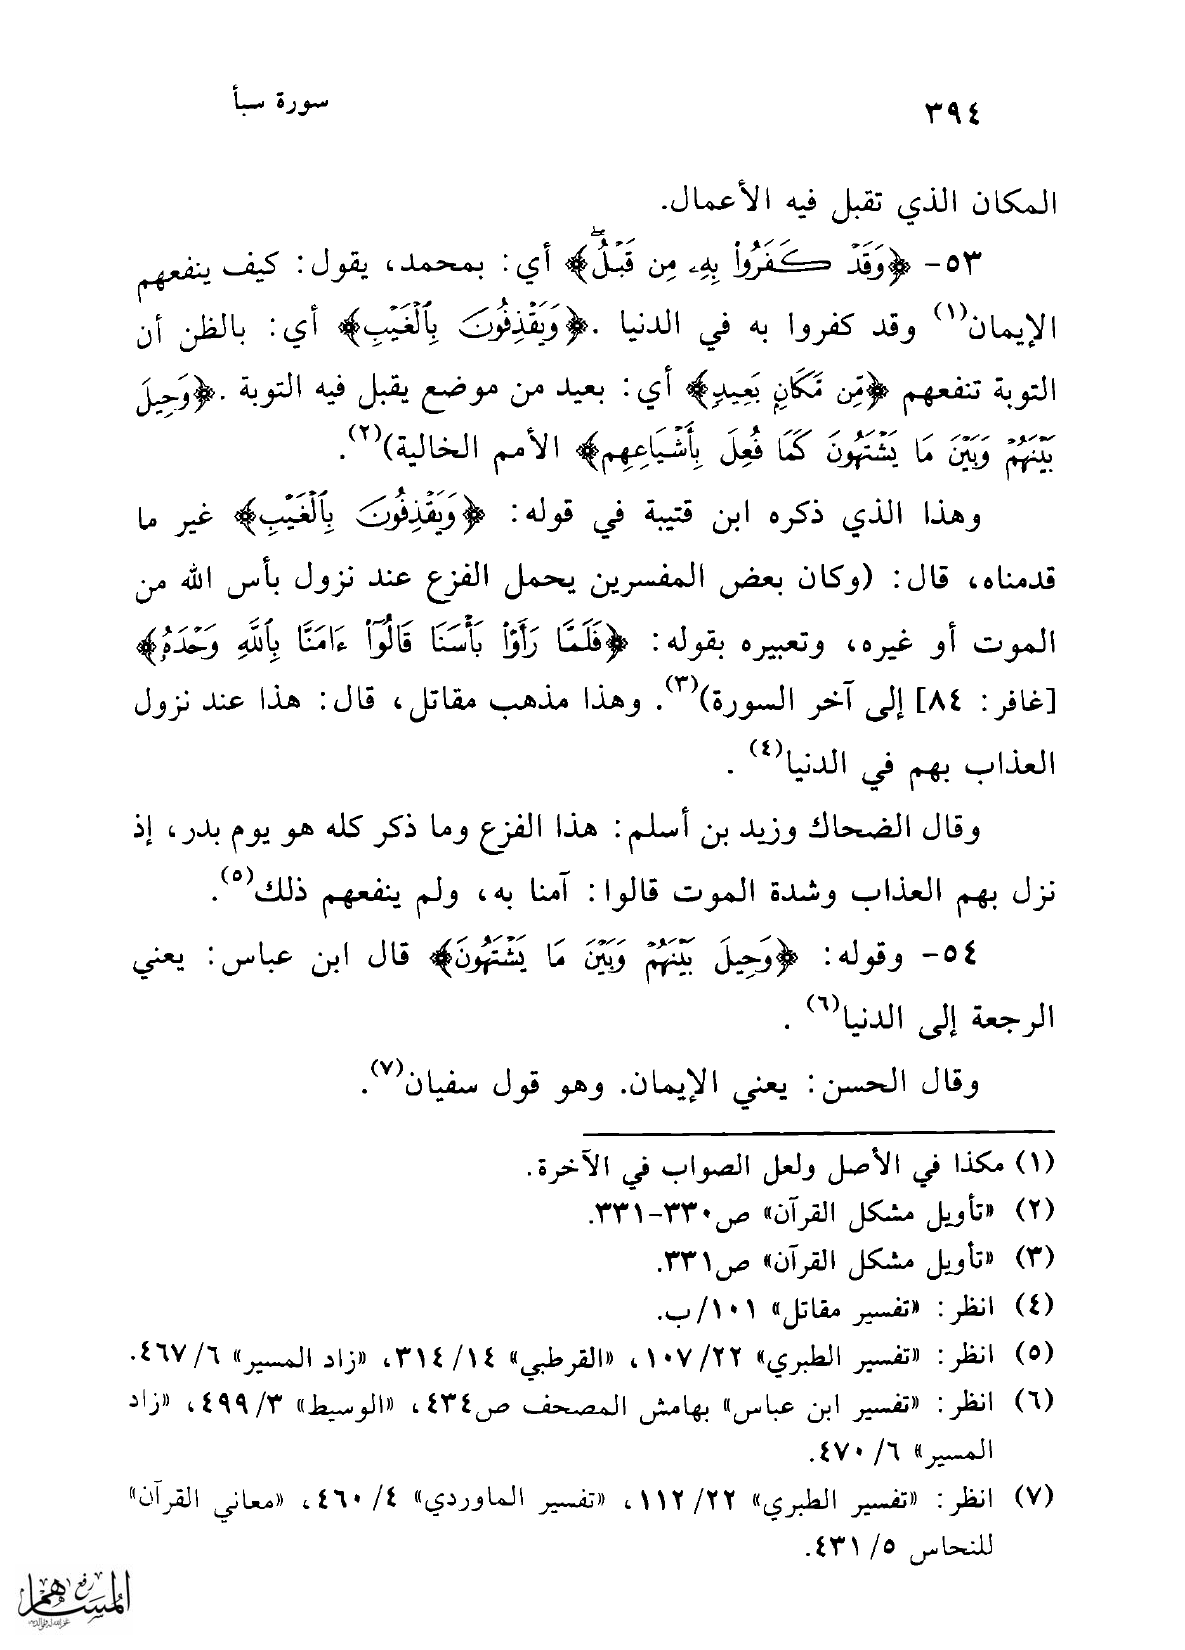 ٣٩٤ سورة سبأ
المكان الذي تقبل فيه الأعمال.
٥٣- ﴿وَقَدْ كَفَرُوا۟ بِهِۦ مِن قَبْلُ ۖ﴾ أي: بمحمد، يقول: كيف ينفعهم
الإيمان(١) وقد كفروا به في الدنيا .﴿وَيَقْذِفُونَ بِٱلْغَيْبِ﴾ أي: بالظن أن
التوبة تنفعهم ﴿مِن مَّكَانٍ بَعِيدٍ﴾ أي: بعيد من موضع يقبل فيه التوبة .﴿وَحِيلَ
بَيْنَهُمْ وَبَيْنَ مَا يَشْتَهُونَ كَمَا فُعِلَ بِأَشْيَاعِهِم﴾ الأمم الخالية)(٢).
وهذا الذي ذكره ابن قتيبة في قوله: ﴿وَيَقْذِفُونَ بِٱلْغَيْبِ﴾ غير ما
قدمناه، قال: (وكان بعض المفسرين يحمل الفزع عند نزول بأس الله من
الموت أو غيره، وتعبيره بقوله: ﴿فَلَمَّا رَأَوْا۟ بَأْسَنَا قَالُوٓا۟ ءَامَنَّا بِٱللَّهِ وَحْدَهُۥ﴾
[غافر: ٨٤] إلى آخر السورة)(٣). وهذا مذهب مقاتل، قال: هذا عند نزول
العذاب بهم في الدنيا(٤) .
وقال الضحاك وزيد بن أسلم: هذا الفزع وما ذكر كله هو يوم بدر، إذ
نزل بهم العذاب وشدة الموت قالوا: آمنا به، ولم ينفعهم ذلك(٥).
٥٤- وقوله: ﴿وَحِيلَ بَيْنَهُمْ وَبَيْنَ مَا يَشْتَهُونَ﴾ قال ابن عباس: يعني
الرجعة إلى الدنيا(٦) .
وقال الحسن: يعني الإيمان. وهو قول سفيان(٧).
(١) مكذا في الأصل ولعل الصواب في الآخرة.
(٢) «تأويل مشكل القرآن» ص٣٣٠-٣٣١.
(٣) «تأويل مشكل القرآن» ص٣٣١.
(٤) انظر: «تفسير مقاتل» ١٠١/ب.
(٥) انظر: «تفسير الطبري» ٢٢/١٠٧، «القرطبي» ١٤/٣١٤، «زاد المسير» ٦/٤٦٧.
(٦) انظر: «تفسير ابن عباس» بهامش المصحف ص٤٣٤، «الوسيط» ٣/٤٩٩، «زاد
المسير» ٦/٤٧٠.
(٧) انظر: «تفسير الطبري» ٢٢/١١٢، «تفسير الماوردي» ٤/٤٦٠، «معاني القرآن»
للنحاس ٥/٤٣١.